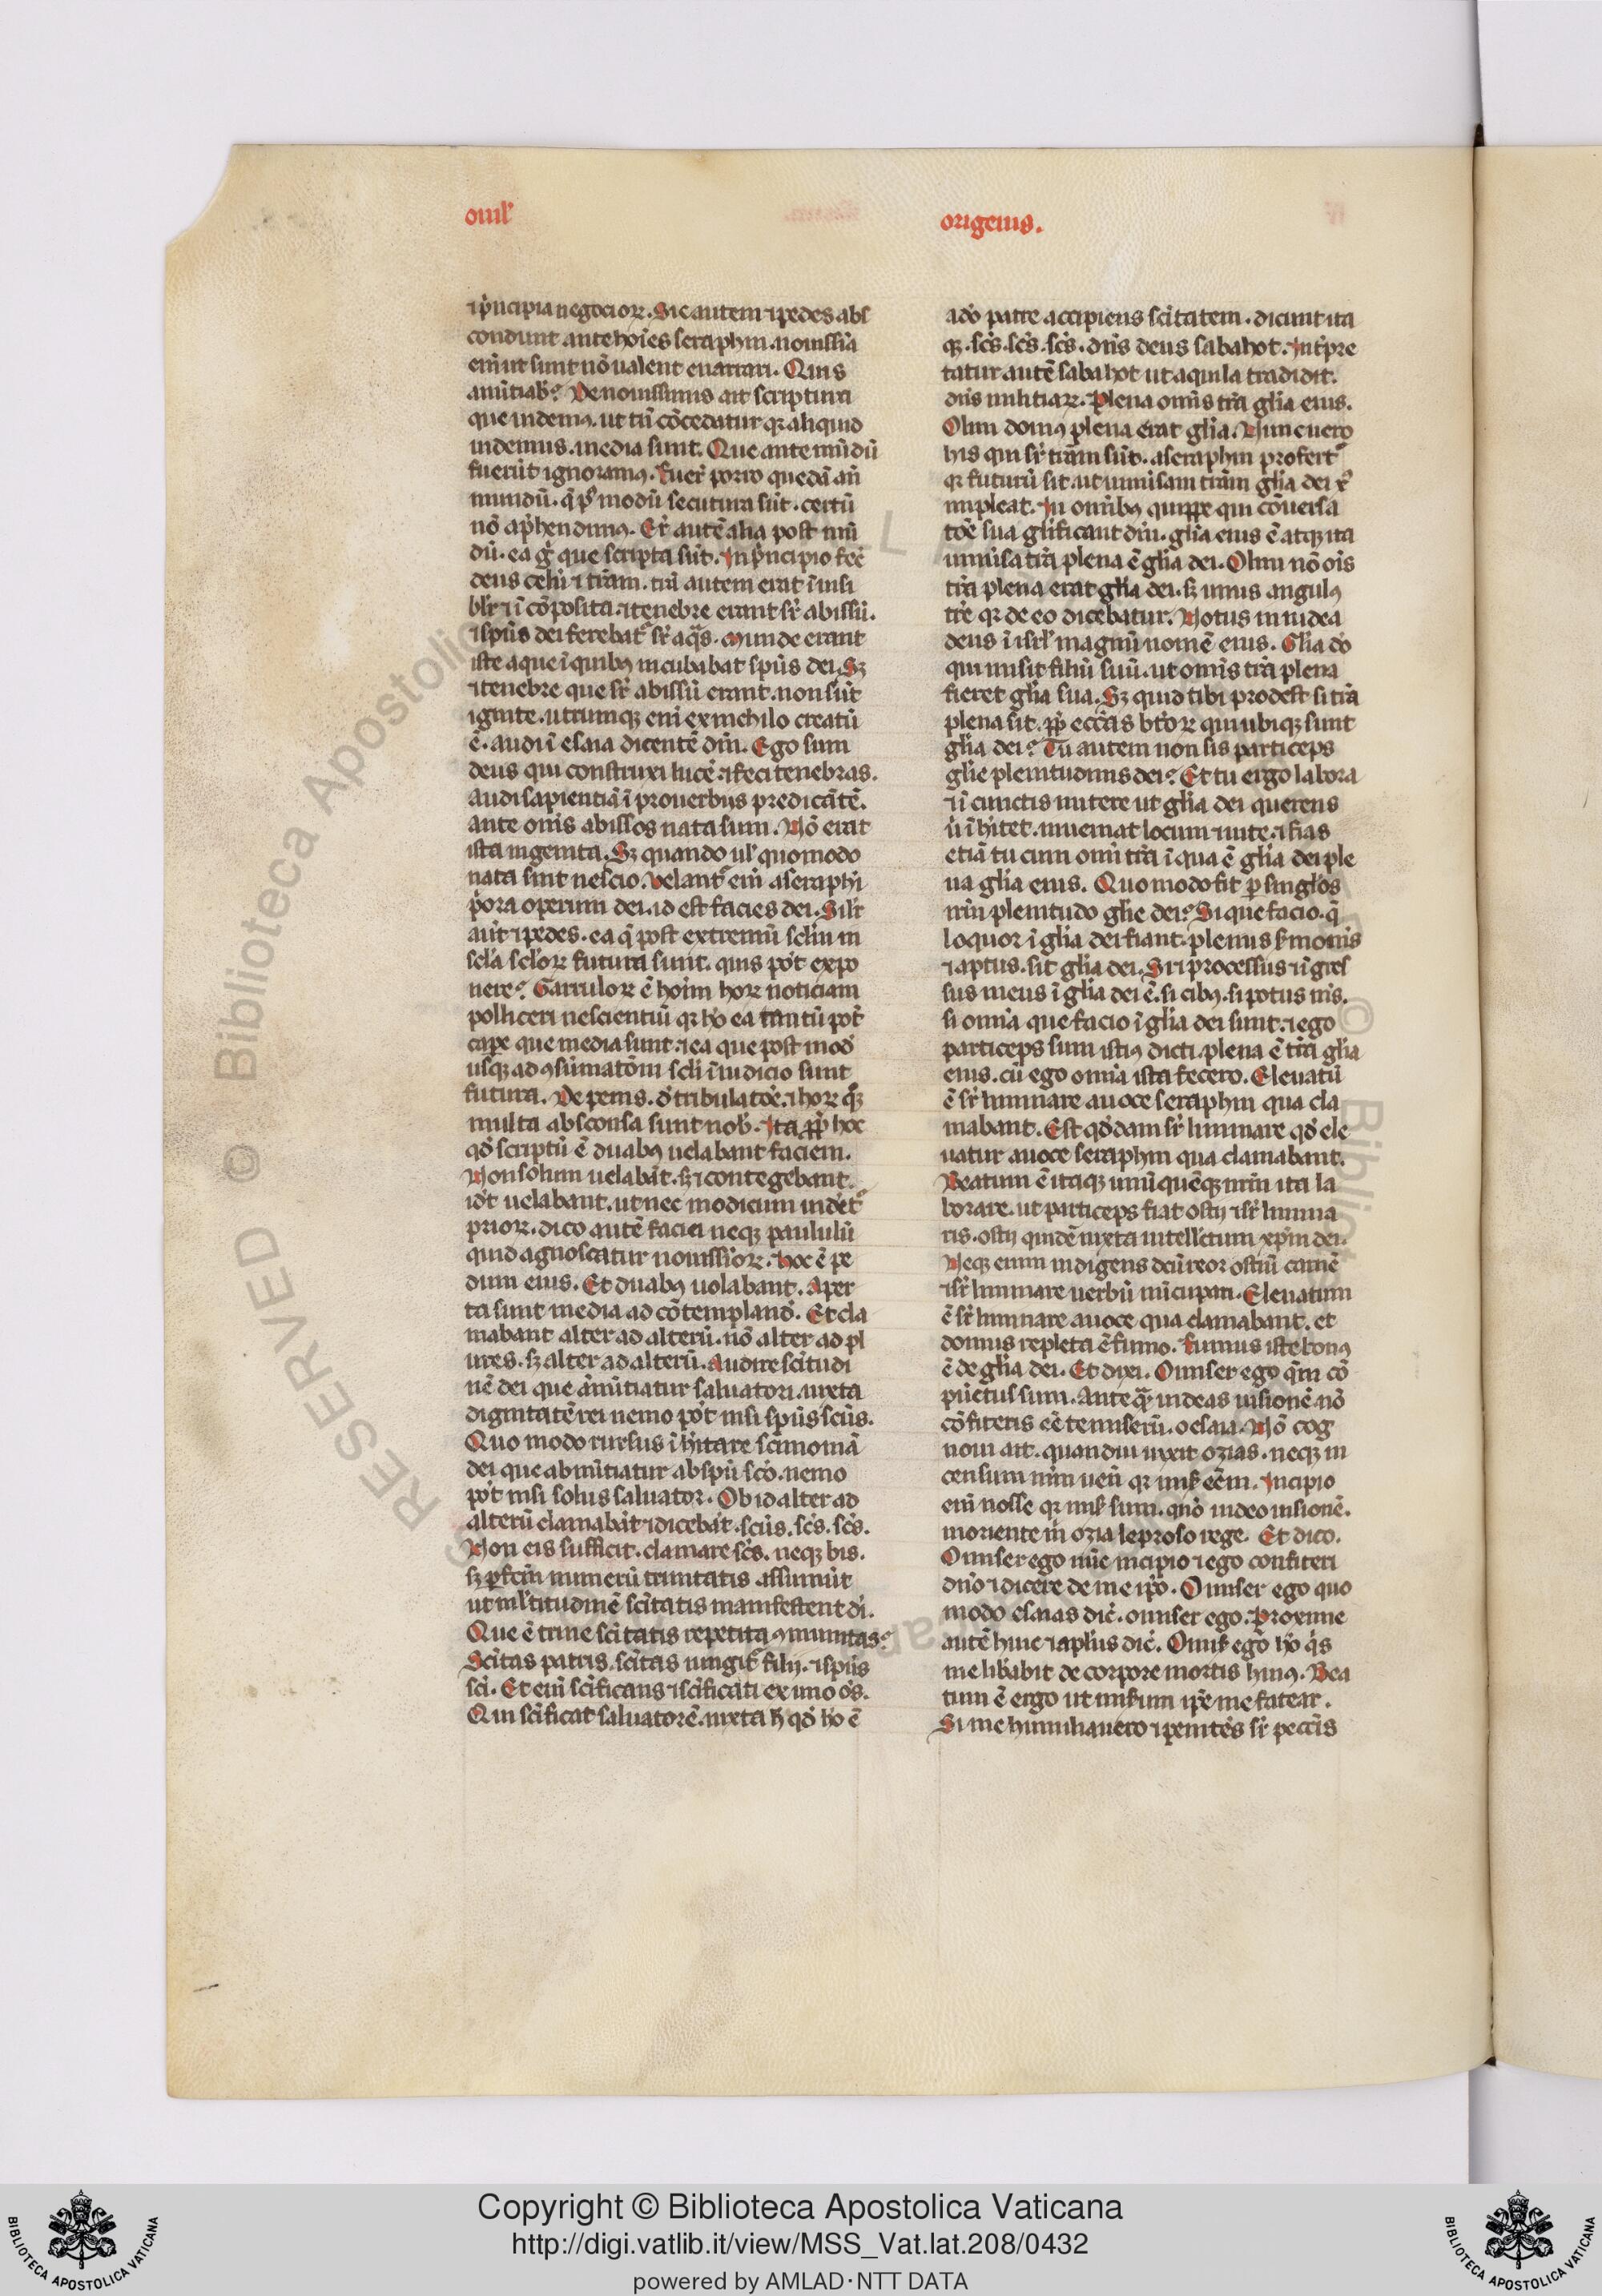 omil'
origenis.
⁊ p'ncipia negocioꝝ. Sic autem ⁊ pedes abs
condunt ante hoīes seraphin. nouissīa
enī ut sunt nō ualent enarrari. Quis
anūtiab'? De nouissimis ait scriptura
que uidemꝰ. ut tn̄ cōcedatur qꝛ aliquid
uidemus. media sunt. Que ante mūdū
fuerūt ignoramꝰ. Fuer̄ porro quedā an̄
mundū. certū
nō ap'hendimꝰ. Er̄ autē alia post mū
dū. ea g° que scripta sūt. In p'ncipio fec̄
deus celū ⁊ trām. trā autem erat īuisi
bil' ⁊ īcōposita. ⁊ tenebre erant sr̄ abissū.
⁊ spūs dei ferebat᷑ sr̄ aq̄s. Munde erant
iste aque ī quibꝰ incubabat spūs dei. Sꝫ
⁊ tenebre que sr̄ abissū erant. non sūt
ignite. utrumqꝫ enī ex nichilo creatū
ē. audi ī esaia dicentē dn̄m. Ego sum
deus qui construxi lucē. ⁊ feci tenebras.
audi sapientiā ī prouerbiis predicātē.
ante om̄is abissos nata sum. Nō erat
ista ingenita. Sꝫ quando ul' quomodo
nata sint nescio. Velant᷑ enī a seraphī
p'ora operum dei. id est facies dei. Sil'r
aūt ⁊ pedes. ea q̄ post extremū scl'm in
scl'a scl'oꝝ futura sunt. quis pōt expo
nere? Garruloꝝ ē hoīm hoꝝ noticiam
polliceri nescientiū qꝛ hō ea tantū pōt
cape que media sunt. ⁊ ea que post mod̄
usqꝫ ad ꝯsūmatōm scl'i ī iudicio sunt
futura. De penis. d' tribulatōe. ⁊ hoꝝ q̄ꝫ
multa absconsa sunt nob̄. Ita ꝓpt' hoc
qd̄ scriptū ē duabꝰ uelabant faciem.
Non solum uelabāt. sꝫ ⁊ contegebant.
idē uelabant. ut nec modicum uidēt᷑
prioꝝ. dico autē faciei neqꝫ paululū
quid agnoscatur nouissīoꝝ. hoc ē pe
dum eius. Et duabꝰ uolabant. Aper
ta sunt media ad cōtempland̄. Et cla
mabant alter ad alterū. nō alter ad pl
ures. sꝫ alter ad alterū. Audire scītudi
nē dei que ānūtiatur saluatori. iuxta
dignitatē rei nemo pōt nisi spūs scūs.
Quo modo rursus īh'itare scīmoniā
dei que abnūtiatur ab spū scō. nemo
pōt nisi solus saluator. Ob id alter ad
alterū clamabāt ⁊ dicebāt. scūs. scs̄. scs̄.
Non eis sufficit. clamare scs̄. neqꝫ bis.
sꝫ ꝑfcm̄ numerū trinitatis assumūt
ut ml'titudinē scītatis manifestent dī.
Que ē trine scītatis repetita ꝯmunitas?
Scītas patris. scītas iungit᷑ filii. ⁊ spūs
scī. Et enī scīficans ⁊ scīficati ex uno oēs.
Qui scīficat saluatorē. iuxta h' qd̄ hō ē
a dō patre accipiens scītatem. dicunt ita
qꝫ. scs̄. scs̄. scs̄. dn̄s deus sabahot. Int'pre
tatur autē sabahot ut aquila tradidit.
dn̄s militiaꝝ. Plena om̄is trā glīa eius.
Olim domꝰ plena erat glīa. Nunc uero
his qui sr̄ trām sūt. a seraphin profert᷑
qꝛ futurū sit. ut uniūsam trām glīa dei
impleat. In om̄ibꝰ quippe qui cōuersa
tōe sua glīficant dn̄m. glīa eius ē atqꝫ ita
uniūsa trā plena ē glīa dei. Olim nō oīs
trā plena erat glīa dei. sꝫ unus angulꝰ
tr̄e qꝛ de eo dicebatur. Notus in iudea
deus ī isrl' magnū nomē eius. Glīa dō
qui misit filiū suū. ut om̄is trā plena
fieret glīa sua. Sꝫ quid tibi prodest si trā
plena sit. ꝓpt' eccl'ias bt̄oꝝ qui ubiqꝫ sunt
glīa dei? Tu autem non sis particeps
glīe plenitudinis dei? Et tu ergo labora
⁊ ī cunctis nitere ut glīa dei querens
ū īh'itet. inueniat locum ī te. ⁊ fias
etiā tu cum omī trā ī qua ē glīa dei ple
na glīa eius. Quomodo fit ꝑ singl'os
nr̄m plenitudo glīe dei? Si que facio. q̄
loquor ī glīa dei fiant. plenus s'monis
⁊ aptus. sit glīa dei. Si processus ⁊ īgres
sus meus ī glīa dei ē. si cibꝰ. si potus m̄s.
si omīa que facio ī glīa dei sunt. ⁊ ego
particeps sum istiꝰ dicti. plena ē trā glīa
eius. cū ego omīa ista fecero. Eleuatū
ē sr̄ liminare a uoce seraphin qua cla
mabant. Est qd̄dam sr̄ liminare qd̄ ele
uatur a uoce seraphin qua clamabant.
Beatum ē itaqꝫ unū quēqꝫ nr̄m ita la
borare. ut particeps fiat ostii ⁊ sr̄ limina
ris. ostii quidē iuxta intell'ctum xp̄m dei.
Neqꝫ enim indigens dcū reor ostiū carnē
⁊ sr̄ liminare uerbū nūcupari. Eleuatum
ē sr̄ liminare a uoce qua clamabant. et
domus repleta ē fumo. Fumus iste bonꝰ
ē de glīa dei. Et dixi. O miser ego qm̄ cō
pūctus sum. Ante q̄ꝫ uideas uisionē nō
cōfiteris eē te miserū. o esaia. Nō cog
noui ait. quandiu uixit ozias. neqꝫ in
censum nr̄m uen̄ qꝛ mis' eēm. Incipio
enī nosse qꝛ mis' sum. qn̄o uideo uisionē.
moriente m̄ ozia leproso rege. Et dico.
O miser ego nūc incipio ⁊ ego confiteri
dn̄o ⁊ dicere de me ip̄o. O miser ego quo
modo esaias dic̄. o miser ego. Proxime
autē huic ⁊ apl'us dic̄. O mis' ego hō q̄s
me lib'abit de corpore mortis huiꝰ. Bea
tum ē ergo ut mis'um ip̄e me fatear.
Si me humiliauero ⁊ penitēs sr̄ pecctīs
© Biblioteca Apostolica Vaticana
RESERVED
Copyright © Biblioteca Apostolica Vaticana
http://digi.vatlib.it/view/MSS_Vat.lat.208/0432
powered by AMLAD·NTT DATA
BIBLIOTECA APOSTOLICA VATICANA
BIBLIOTECA APOSTOLICA VATICANA